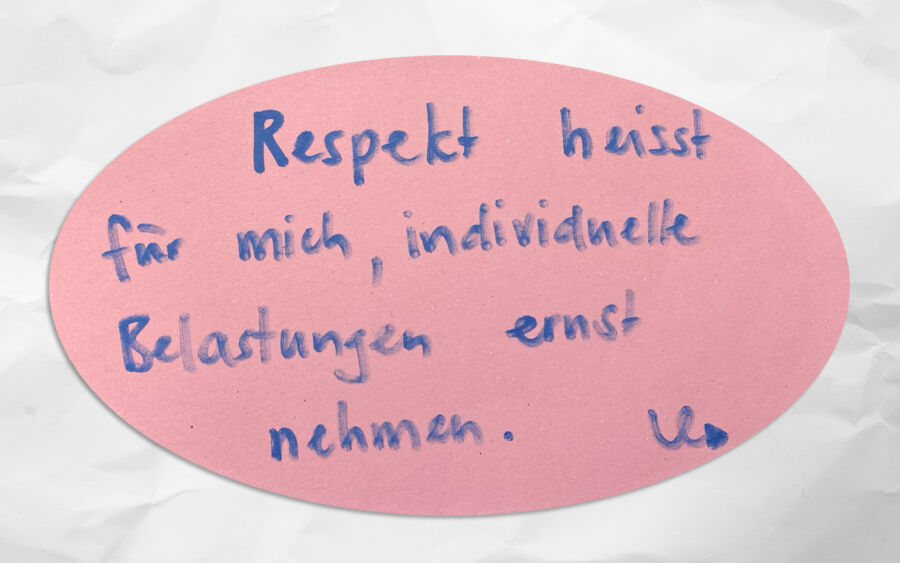 Respekt heisst
für mich, individuelle
Belastungen ernst
nehmen.